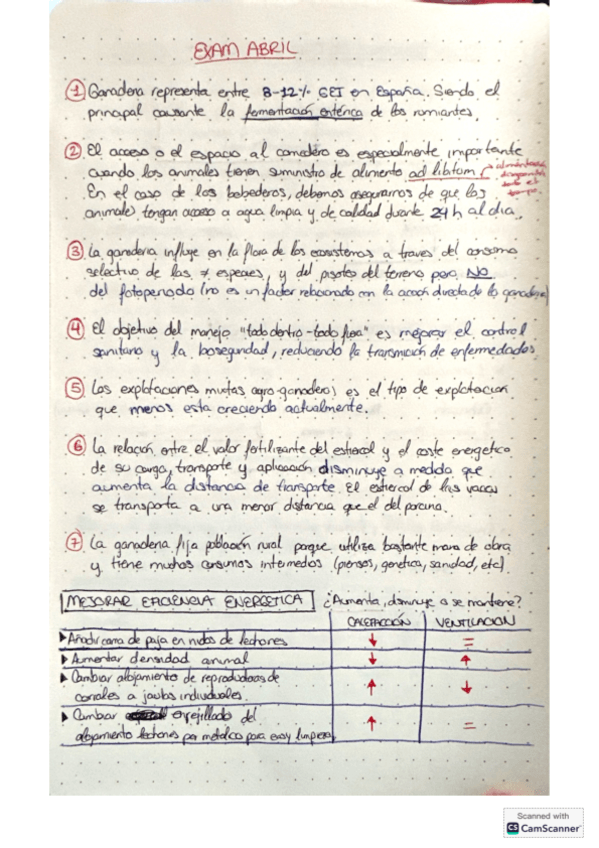 EXAM ABRIL
① Ganadería representa entre 8-12% GEI en España. Siendo el
principal causante la fermentación entérica de los rumiantes
② El acceso o el espacio al comedero es especialmente importante
cuando los animales tienen suministro de alimento ad libitum
En el caso de los bebederos, debemos asegurarnos de que los
animales tengan acceso a agua limpia y de calidad durante 24 h al día.
③ La ganadería influye en la flora de los ecosistemas a traves del consumo
selectivo de las ≠ especies, y del pisoteo del terreno pero NO
del fotoperiodo (no es un factor relacionado con la acción directa de la ganadería)
④ El objetivo del manejo "todo dentro-todo fuera" es mejorar el control
sanitario y la bioseguridad, reduciendo la transmisión de enfermedades.
⑤ Las explotaciones mixtas agro-ganaderas es el tipo de explotación
que menos esta creciendo actualmente.
⑥ La relación entre el valor fertilizante del estiercol y el coste energetico
de su carga, transporte y aplicación disminuye a medida que
aumenta la distancia de transporte. El estiercol de las vacas
se transporta a una menor distancia que el del porcino.
⑦ La ganaderia fija población rural porque utiliza bastante mano de obra
y tiene muchos consumos intermedios (piensos, genética, sanidad, etc)
MEJORAR EFICIENCIA ENERGETICA ¿Aumenta, disminuye o se mantiene?
CALEFACCIÓN VENTILACION
▸ Añadir cama de paja en nidos de lechones ↓ =
▸ Aumentar densidad animal ↓ ↑
▸ Cambiar alojamiento de reproductoras de
corrales a jaulas individuales. ↑ ↓
▸ Cambiar enrejillado del
alojamiento lechones por metálico para + easy limpieza ↑ =
Scanned with
CS CamScanner